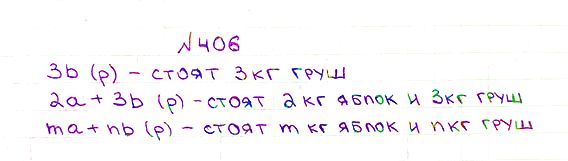 №406
3b (р) – стоят 3кг груш
2a + 3b (р) – стоят 2кг яблок и 3кг груш
ma + nb (р) – стоят m кг яблок и nкг груш